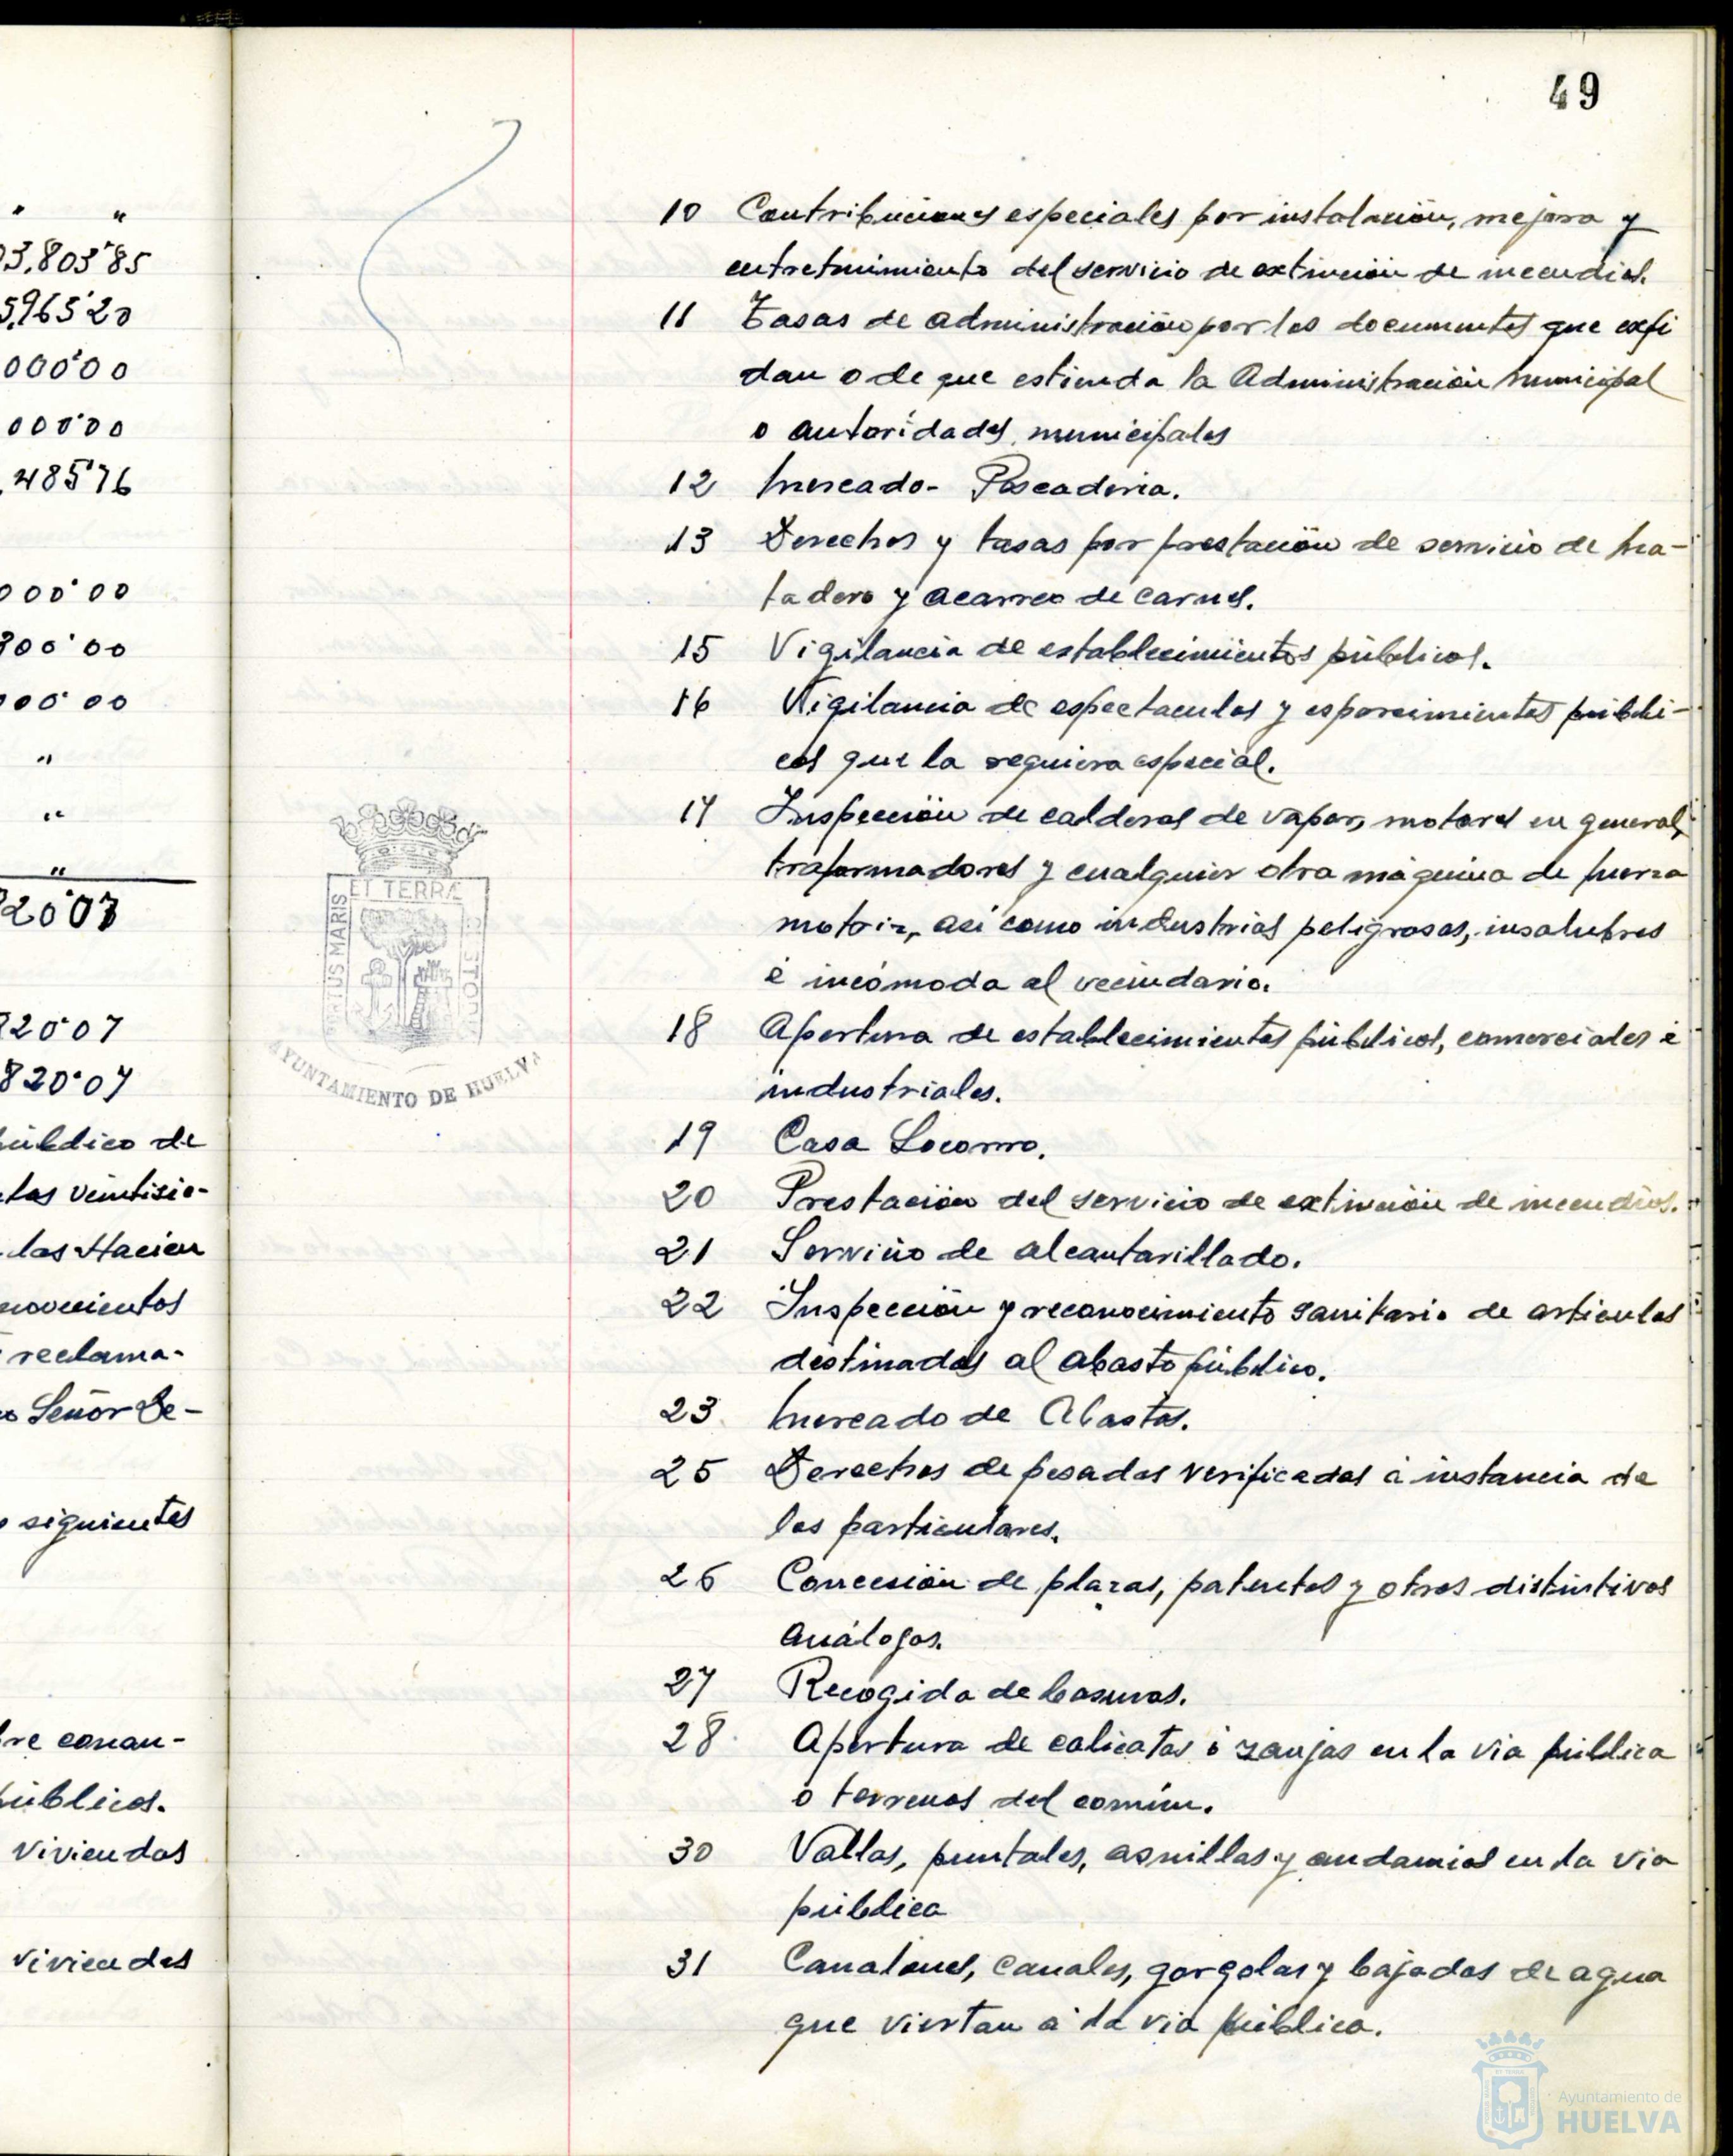 "	"
03.803'85
5,965'20
000'00
00'00
,485'76
000'00
300'00
000'00
"
"
"
820'07
820'07
público de
tas veintisie-
las Hacien
novecientos
reclama-
Señor De-
siguientes
bre conau-
públicos.
viviendas
viviendas
49
10 Contribuciones especiales por instalación, mejora y
entretenimiento del servicio de extinción de incendios.
11 Tasas de administración por los documentos que expi
dan o de que estienda la Administración Municipal
o autoridades municipales
12 Mercado- Pescaderia.
13 Derechos y tasas por prestación de servicio de Ma-
tadero y acarreo de carnes.
15 Vigilancia de establecimientos públicos.
16 Vigilancia de espectaculos y esparcimientos públi-
cos que la requiera especial.
17 Inspección de calderas de vapor, motores en general,
traformadores y cualquier otra máquina de fuerza
motriz, así como industrias peligrosas, insalubres
é incómoda al vecindario.
18 Apertura de establecimientos públicos, comerciales é
industriales.
19 Casa Socorro.
20 Prestación del servicio de extinción de incendios.
21 Servicio de alcantarillado.
22 Inspección y reconocimiento sanitario de articulos
destinados al abasto público.
23 Mercado de Abastos.
25 Derechos de pesadas verificadas á instancia de
los particulares.
26 Concesión de plazas, patentes y otros distintivos
análogos.
27 Recogida de basuras.
28 Apertura de calicatas ó zanjas en la via pública
o terrenos del común.
30 Vallas, puntales, asnillas y andamios en la via
pública
31 Canalones, canales, gorgolas y bajadas de agua
que viertan á la via pública.
PORTUS MARIS
ET TERRÆ
CUSTODIA
AYUNTAMIENTO DE HUELVA
Ayuntamiento de
HUELVA